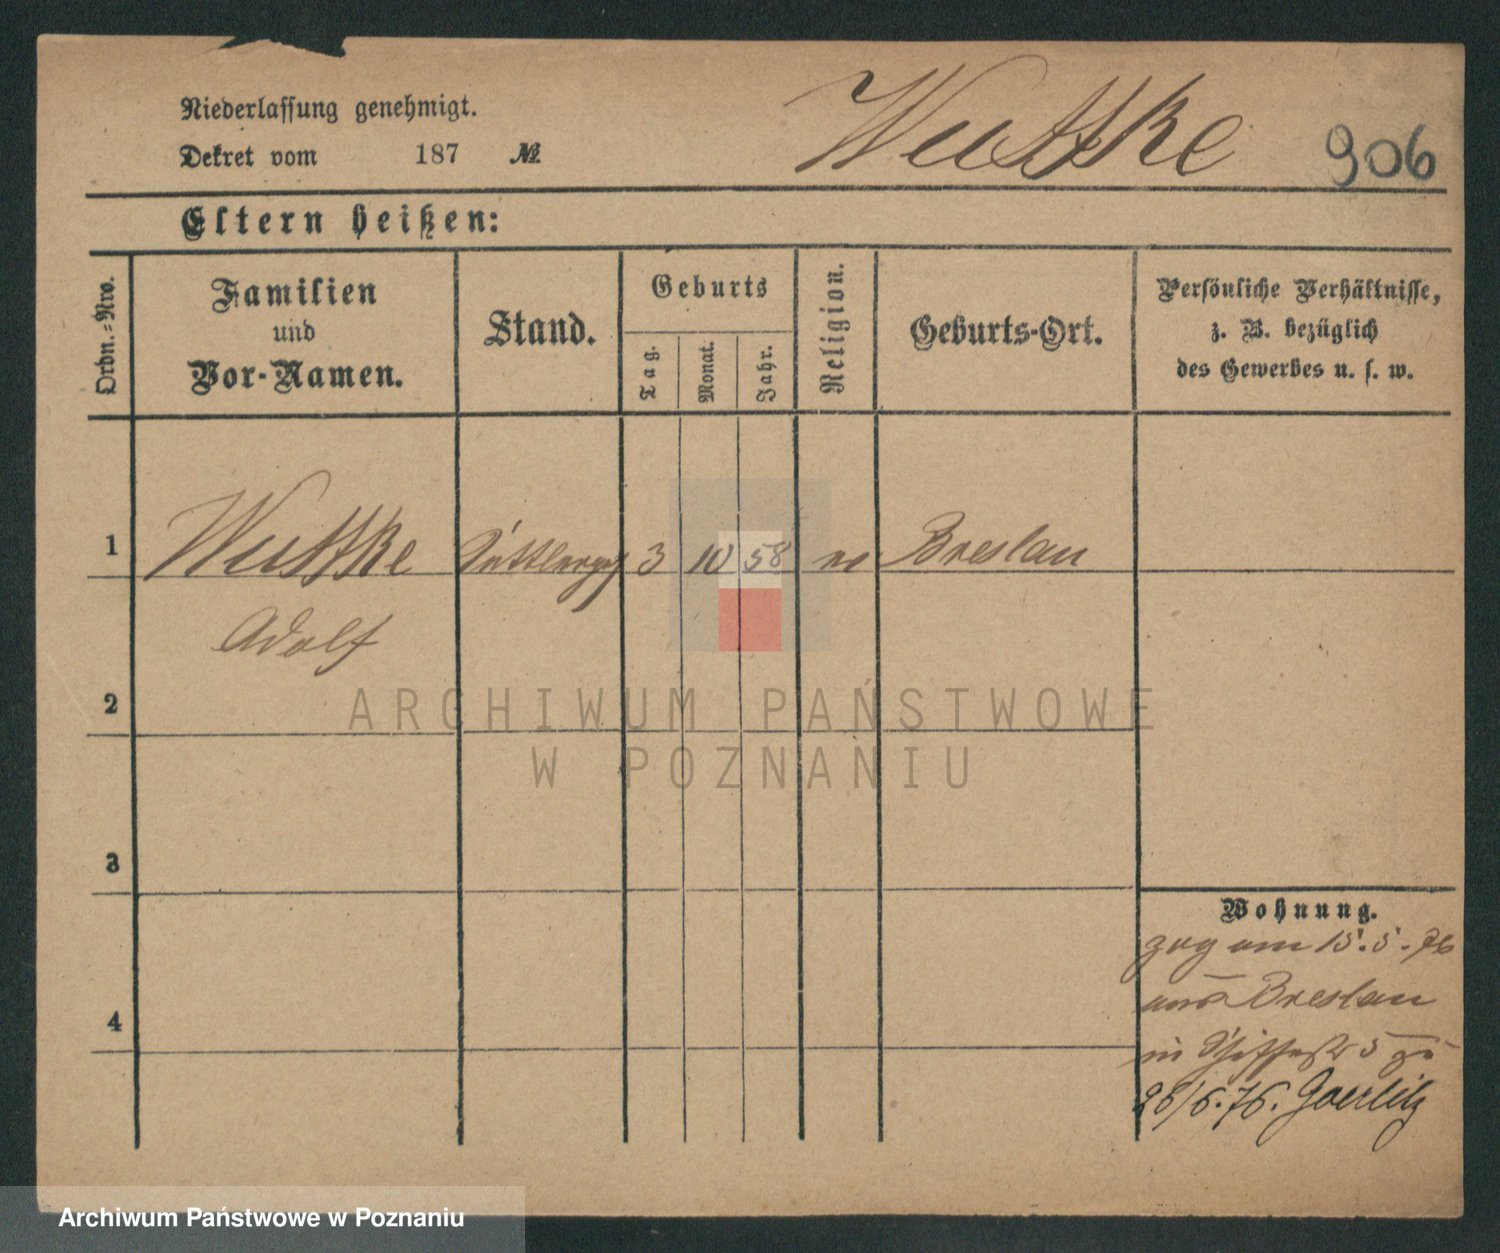 Niederlassung genehmigt.
Wuttke 906
Dekret vom 187 №
Eltern heißen:
Ordn.-Nro.
Familien
und
Vor-Namen.
Stand.
Geburts
Tag.
Monat.
Jahr.
Religion.
Geburts-Ort.
Persönliche Verhältnisse,
z. B. bezüglich
des Gewerbes u. s. w.
1 Wuttke 3 10 58 Breslau
Adolf
2
3
4
Wohnung.
zog am 15.5.76
aus Breslau
in 5 zu
26/6.76. Goerlitz
ARCHIWUM PAŃSTWOWE
W POZNANIU
Archiwum Państwowe w Poznaniu